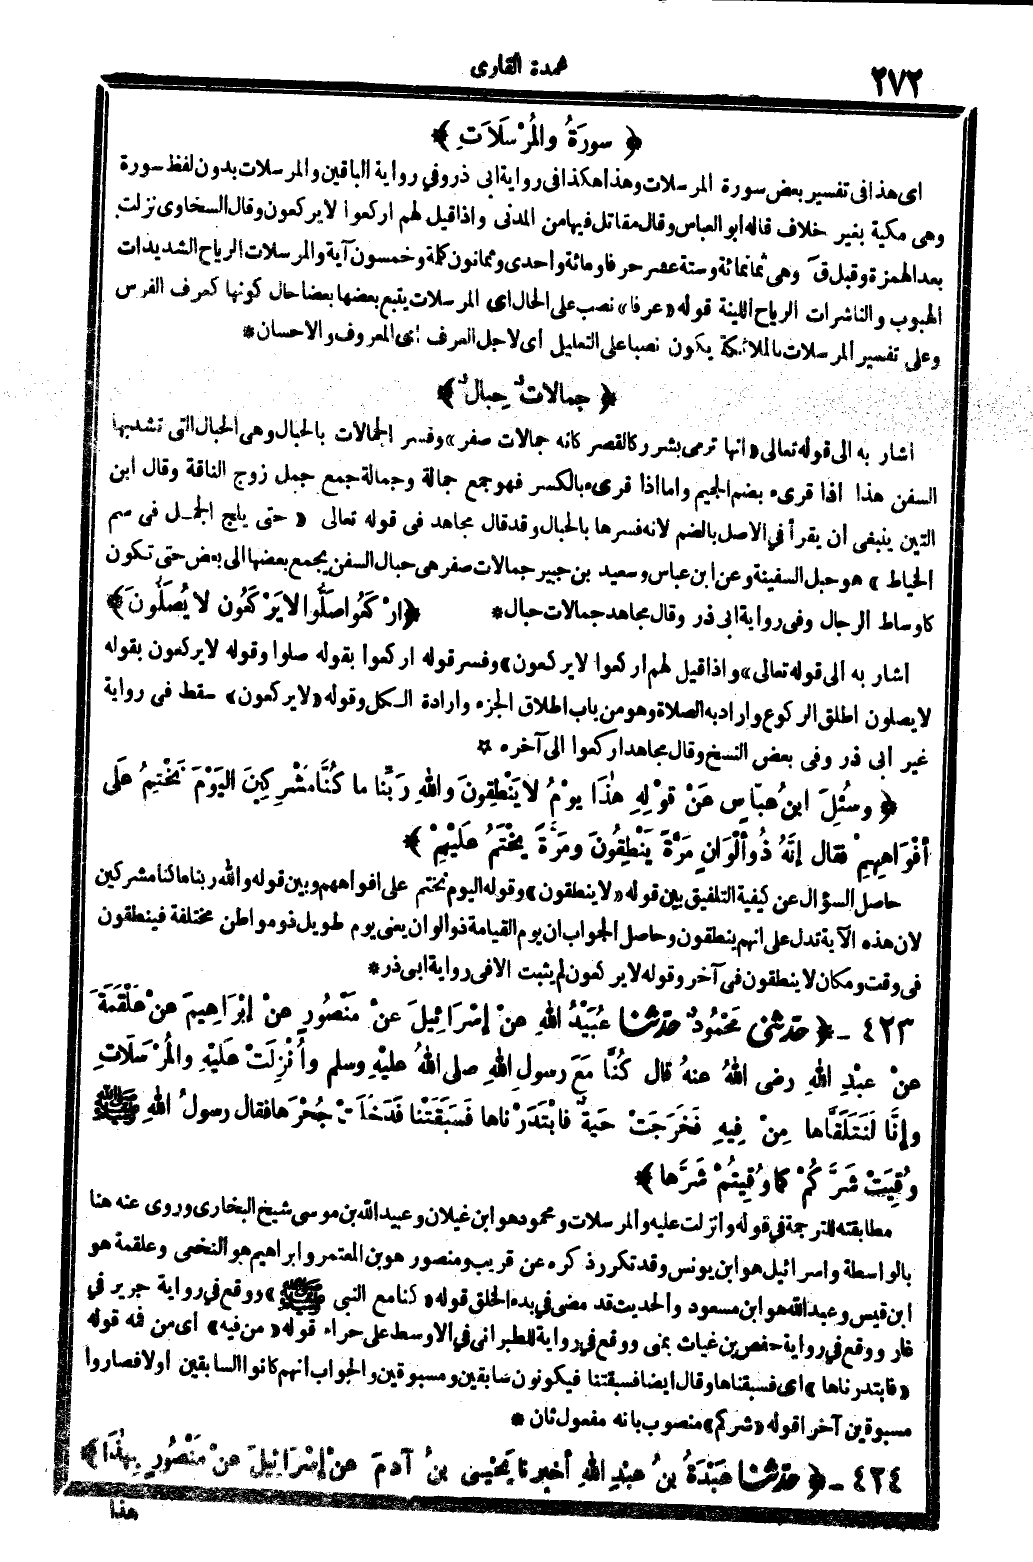 ٢٧٢
عمدة القارى
﴿ سورَةُ والمُرْسَلَاتِ ﴾
اى هذا فى تفسير بعض سورة المرسلات وهذا هكذا فى رواية ابى ذر وفي رواية الباقين والمرسلات بدون لفظ سورة
وهى مكية بغير خلاف قاله ابو العباس وقال مقاتل فيها من المدنى واذا قيل لهم اركعوا لا يركعون وقال السخاوى نزلت
بعد الهمزة وقبل ق وهى ثمانمائة وستة عشر حرفا ومائة واحدى وثمانون كلمة وخمسون آية والمرسلات الرياح الشديدات
الهبوب والناشرات الرياح اللينة قوله «عرفا» نصب على الحال اى المرسلات يتبع بعضها بعضا حال كونها كعرف الفرس
وعلى تفسير المرسلات بالملائكة يكون نصبا على التعليل أى لاجل العرف أى المعروف والاحسان *
﴿ جمالاتٌ حِبالٌ ﴾
اشار به الى قوله تعالى «انها ترمى بشرر كالقصر كانه جمالات صفر» وفسر الجمالات بالحبال وهى الحبال التى تشد بها
السفن هذا اذا قرىء بضم الجيم واما اذا قرىء بالكسر فهو جمع جمالة وجمالة جمع جمل زوج الناقة وقال ابن
التين ينبغى ان يقرأ في الاصل بالضم لانه فسرها بالحبال وقد قال مجاهد فى قوله تعالى « حتى يلج الجمل فى سم
الخياط » هو حبل السفينة وعن ابن عباس وسعيد بن جبير جمالات صفر هى حبال السفن يجمع بعضها الى بعض حتى تكون
كاوساط الرجال وفى رواية ابى ذر وقال مجاهد جمالات حبال * ﴿ارْكَعُوا صَلُّوا لا يَرْكَعُون لا يُصَلُّونَ﴾
اشار به الى قوله تعالى «واذا قيل لهم اركعوا لا يركعون» وفسر قوله اركعوا بقوله صلوا وقوله لا يركعون بقوله
لا يصلون اطلق الركوع واراد به الصلاة وهو من باب اطلاق الجزء وارادة الكل وقوله «لا يركعون» سقط فى رواية
غير ابى ذر وفى بعض النسخ وقال مجاهد اركعوا الى آخره *
﴿ وسُئِلَ ابنُ عبَّاسٍ عَنْ قوْلِهِ هٰذَا يوْمُ لا يَنْطِقونَ واللهِ رَبِّنا ما كُنَّا مُشْرِكِينَ اليَوْمَ نَخْتِمُ عَلَى
أفْوَاهِهِمْ فقال إنَّهُ ذُو ألْوَانٍ مَرَّةً يَنْطِقُونَ ومَرَّةً يُخْتَمُ عَلَيْهِمْ ﴾
حاصل السؤال عن كيفية التلفيق بين قوله «لا ينطقون» وقوله اليوم نختم على افواههم وبين قوله والله ربنا ما كنا مشركين
لان هذه الآية تدل على انهم ينطقون وحاصل الجواب ان يوم القيامة ذو الوان يعنى يوم طويل ذو مواطن مختلفة فينطقون
فى وقت ومكان لا ينطقون فى آخر وقوله لا يركعون لم يثبت الا فى رواية ابى ذر *
٤٢٣ - ﴿ حَدَّثَنِي مَحْمُودٌ حَدَّثَنَا عُبَيْدُ اللهِ عنْ إسْرَائِيلَ عَنْ مَنْصُورٍ عنْ إبْرَاهِيمَ عنْ عَلْقَمَةَ
عنْ عبْدِ اللهِ رضى اللهُ عنهُ قال كُنَّا مَعَ رسولِ اللهِ صلى اللهُ عليْهِ وسلم وأُنْزِلَتْ عَلَيْهِ والمُرْسَلَاتِ
وإنَّا لَنَتَلَقَّاها مِنْ فِيهِ فَخَرَجَتْ حَيةٌ فابْتَدَرْناها فسَبَقَتْنا فَدَخَلَتْ جُحْرَها فقال رسولُ اللهِ ﷺ
وُقِيَتْ شَرَّكُمْ كما وُقِيتُمْ شَرَّها ﴾
مطابقته للترجمة في قوله وانزلت عليه والمرسلات ومحمود هو ابن غيلان وعبيد الله بن موسى شيخ البخارى وروى عنه هنا
بالواسطة واسرائيل هو ابن يونس وقد تكرر ذكره عن قريب ومنصور هو بن المعتمر وابراهيم هو النخعى وعلقمة هو
ابن قيس وعبد الله هو ابن مسعود والحديث قد مضى في بدء الخلق قوله «كنا مع النبى ﷺ» ووقع في رواية جرير في
غار ووقع في رواية حفص بن غياث بمنى ووقع في رواية للطبرانى في الاوسط على حراء قوله «من فيه» اى من فمه قوله
«فابتدرناها» اى فسبقناها وقال ايضا فسبقتنا فيكونون سابقين ومسبوقين والجواب انهم كانوا السابقين اولا فصاروا
مسبوقين آخرا قوله «شركم» منصوب بانه مفعول ثان *
٤٢٤ - ﴿ حَدَّثَنَا عَبْدَةُ بنُ عبْدِ اللهِ أخبرنا يَحْيىَ بنُ آدمَ عنْ إسْرَائِيلَ عنْ مَنْصُورٍ بِهٰذَا ﴾
هذا